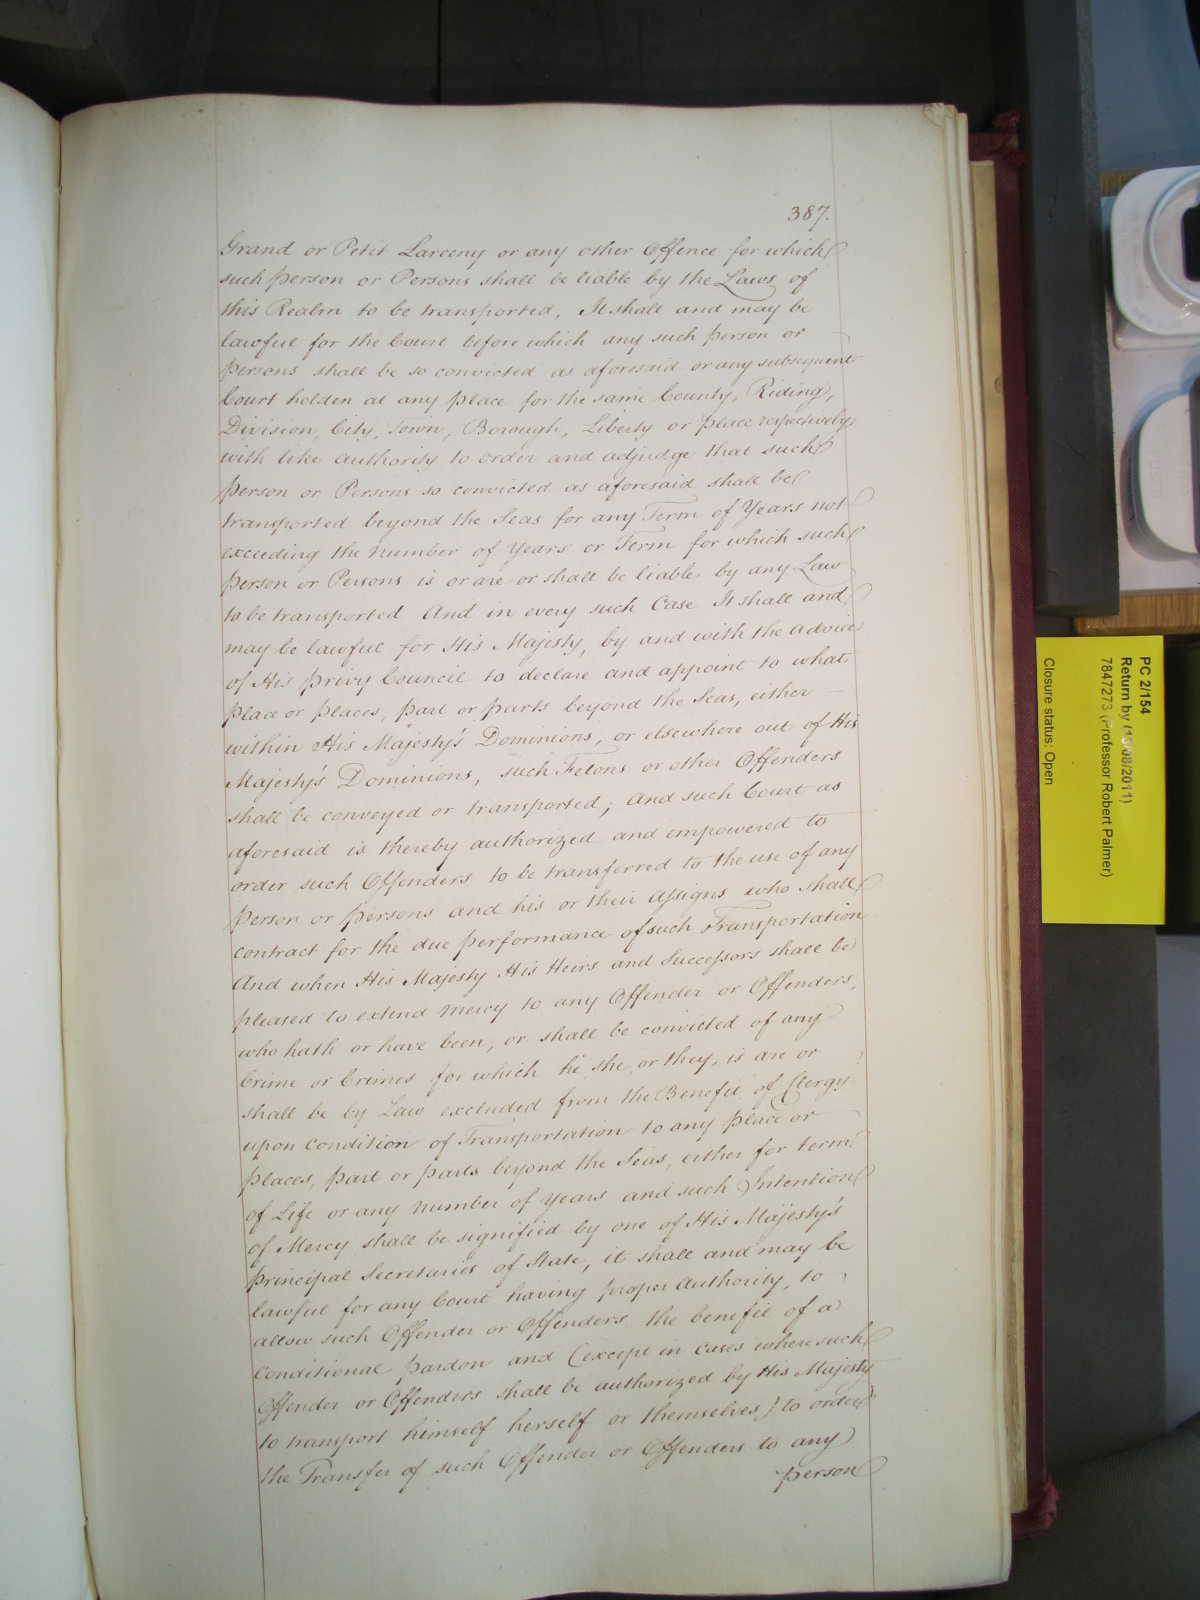 387.
Grand or Petit Larceny or any other Offence for which
such person or Persons shall be liable by the Laws of
this Realm to be transported, It shall and may be
lawful for the Court before which any such person or
persons shall be so convicted as aforesaid or any subsequent
Court holden at any place for the same County, Riding,
Division, City, Town, Borough, Liberty or place respectively
with like authority to order and adjudge that such
person or Persons so convicted as aforesaid shall be
transported beyond the Seas for any Term of Years not
exceeding the number of Years or Term for which such
person or Persons is or are or shall be liable by any Law
to be transported And in every such Case It shall and
may be lawful for His Majesty, by and with the advice
of His privy Council to declare and appoint to what
place or places, part or parts beyond the Seas, either
within His Majesty's Dominions, or elsewhere out of His
Majesty's Dominions, such Felons or other Offenders
shall be conveyed or transported; And such Court as
aforesaid is thereby authorized and empowered to
order such Offenders to be transferred to the use of any
person or persons and his or their assigns who shall
contract for the due performance of such Transportation
And when His Majesty His Heirs and Successors shall be
pleased to extend mercy to any Offender or Offenders,
who hath or have been, or shall be convicted of any
Crime or Crimes for which he, she, or they, is are or
shall be by Law excluded from the Benefit of Clergy
upon condition of Transportation to any place or
places, part or parts beyond the Seas, either for term
of Life or any number of years and such Intention
of Mercy shall be signified by one of His Majesty's
principal Secretaries of State, it shall and may be
lawful for any Court having proper authority, to
allow such Offender or Offenders the benefit of a
conditional pardon and (except in cases where such
Offender or Offenders shall be authorized by His Majesty
to transport himself herself or themselves) to order
the Transfer of such Offender or Offenders to any
person
PC 2/154
Return by (15/08/2011)
7847273 (Professor Robert Palmer)
Closure status: Open